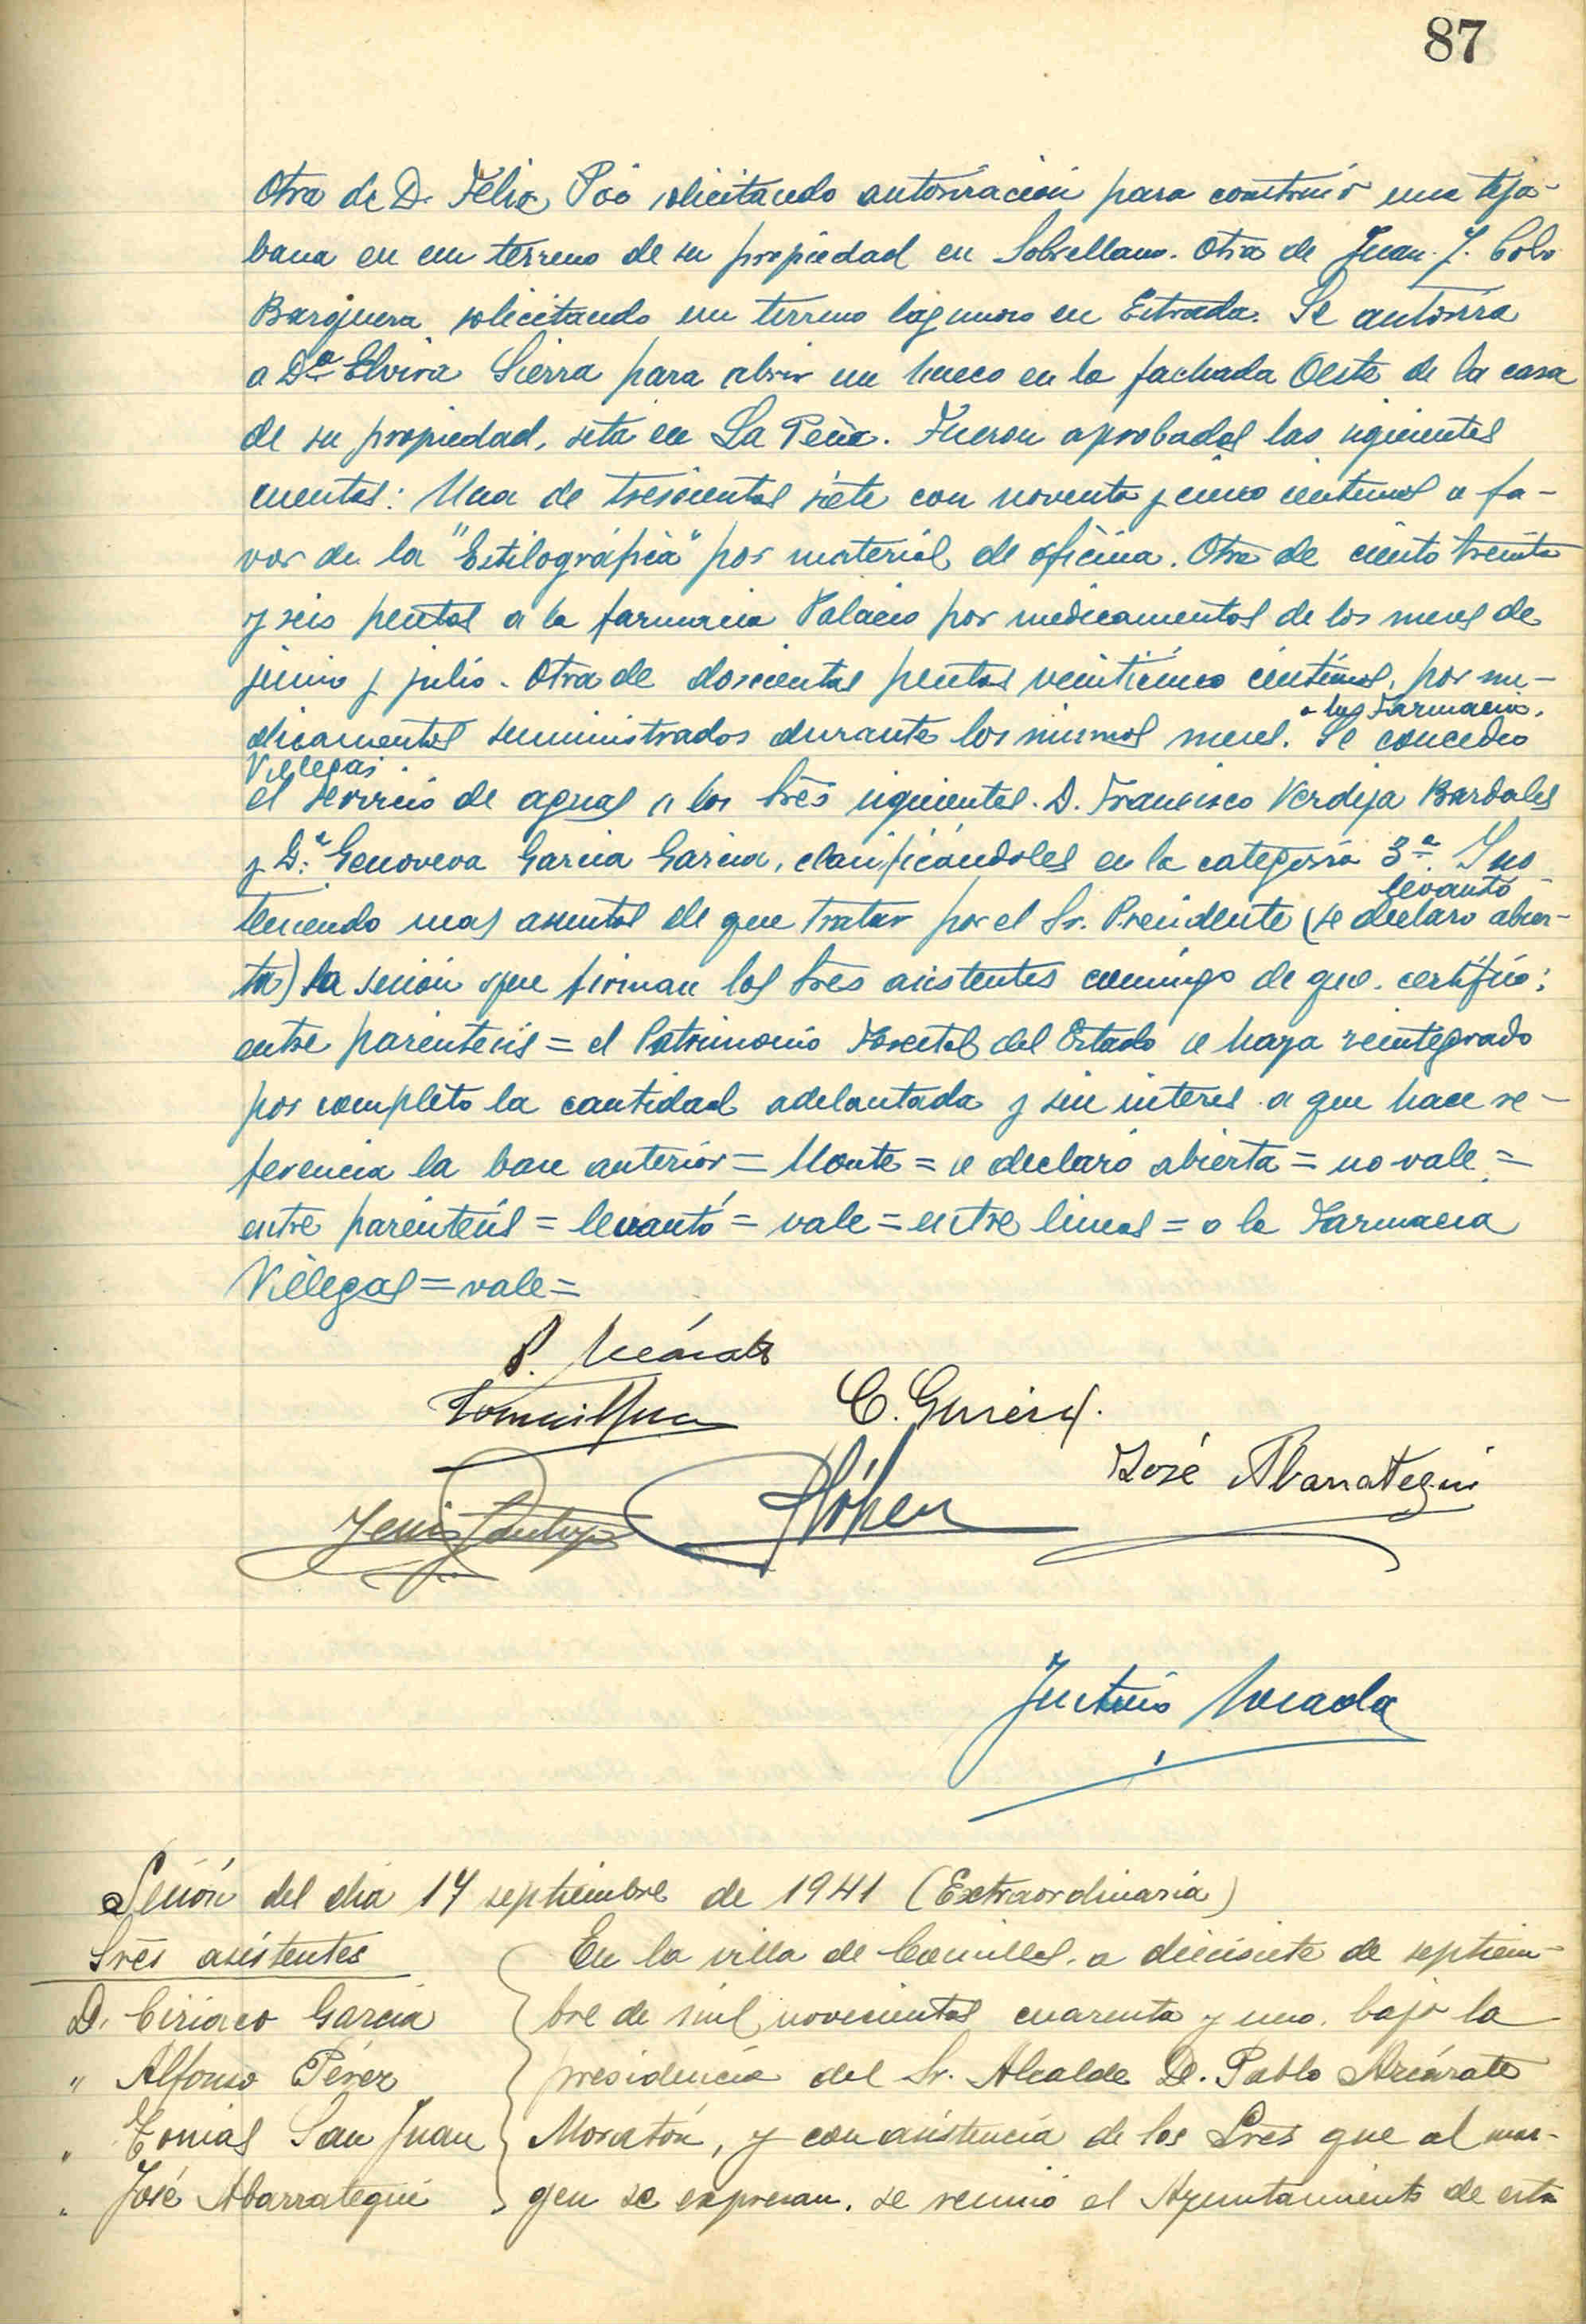 87
Otra de D. Felix Poó solicitando autorización para construir una teja-
bana en un terreno de su propiedad en Sobrellano. Otra de Juan J. Cobo
Barquera solicitando un terreno lagunoso en Estrada. Se autoriza
a Dª Elvira Sierra para abrir un hueco en la fachada Oeste de la casa
de su propiedad, sita en La Peña. Fueron aprobadas las siguientes
cuentas: Una de trescientas siete con noventa y cinco centimos a fa-
vor de la "Estilográfica" por material de oficina. Otra de ciento treinta
y seis pesetas a la farmacia Palacio por medicamentos de los meses de
junio y julio. Otra de doscientas pesetas veinticinco centimos, por me-
a la Farmacia
dicamentos suministrados durante los mismos meses. Se concedio
Villegas.
el servicio de aguas a los Sres siguientes. D. Francisco Verdeja Bardales
y D.ª Genoveva Garcia Garcia, clasificándoles en la categoría 3ª. Y no
levantó
teniendo mas asuntos de que tratar por el Sr. Presidente (se declaro abier-
ta) la sesión que firman los Sres asistentes conmigo de que certifico:
entre parentesis = el Patrimonio Forestal del Estado se haya reintegrado
por completo la cantidad adelantada y sin interes a que hace re-
ferencia la base anterior = Monte = se declaró abierta = no vale =
entre parentesis = levantó = vale = entre lineas = a la Farmacia
Villegas = vale =
P. Azcárate
C. García.
José Abarrategui
Sesión del dia 17 septiembre de 1941 (Extraordinaria)
Sres asistentes
D. Ciriaco García
" Alfonso Pérez
" Tomas San Juan
" José Abarrategui
En la villa de Comillas, a diecisiete de septiem-
bre de mil novecientos cuarenta y uno, bajo la
presidencia del Sr. Alcalde D. Pablo Azcárate
Moratón, y con asistencia de los Sres que al mar-
gen se expresan, se reunio el Ayuntamiento de esta